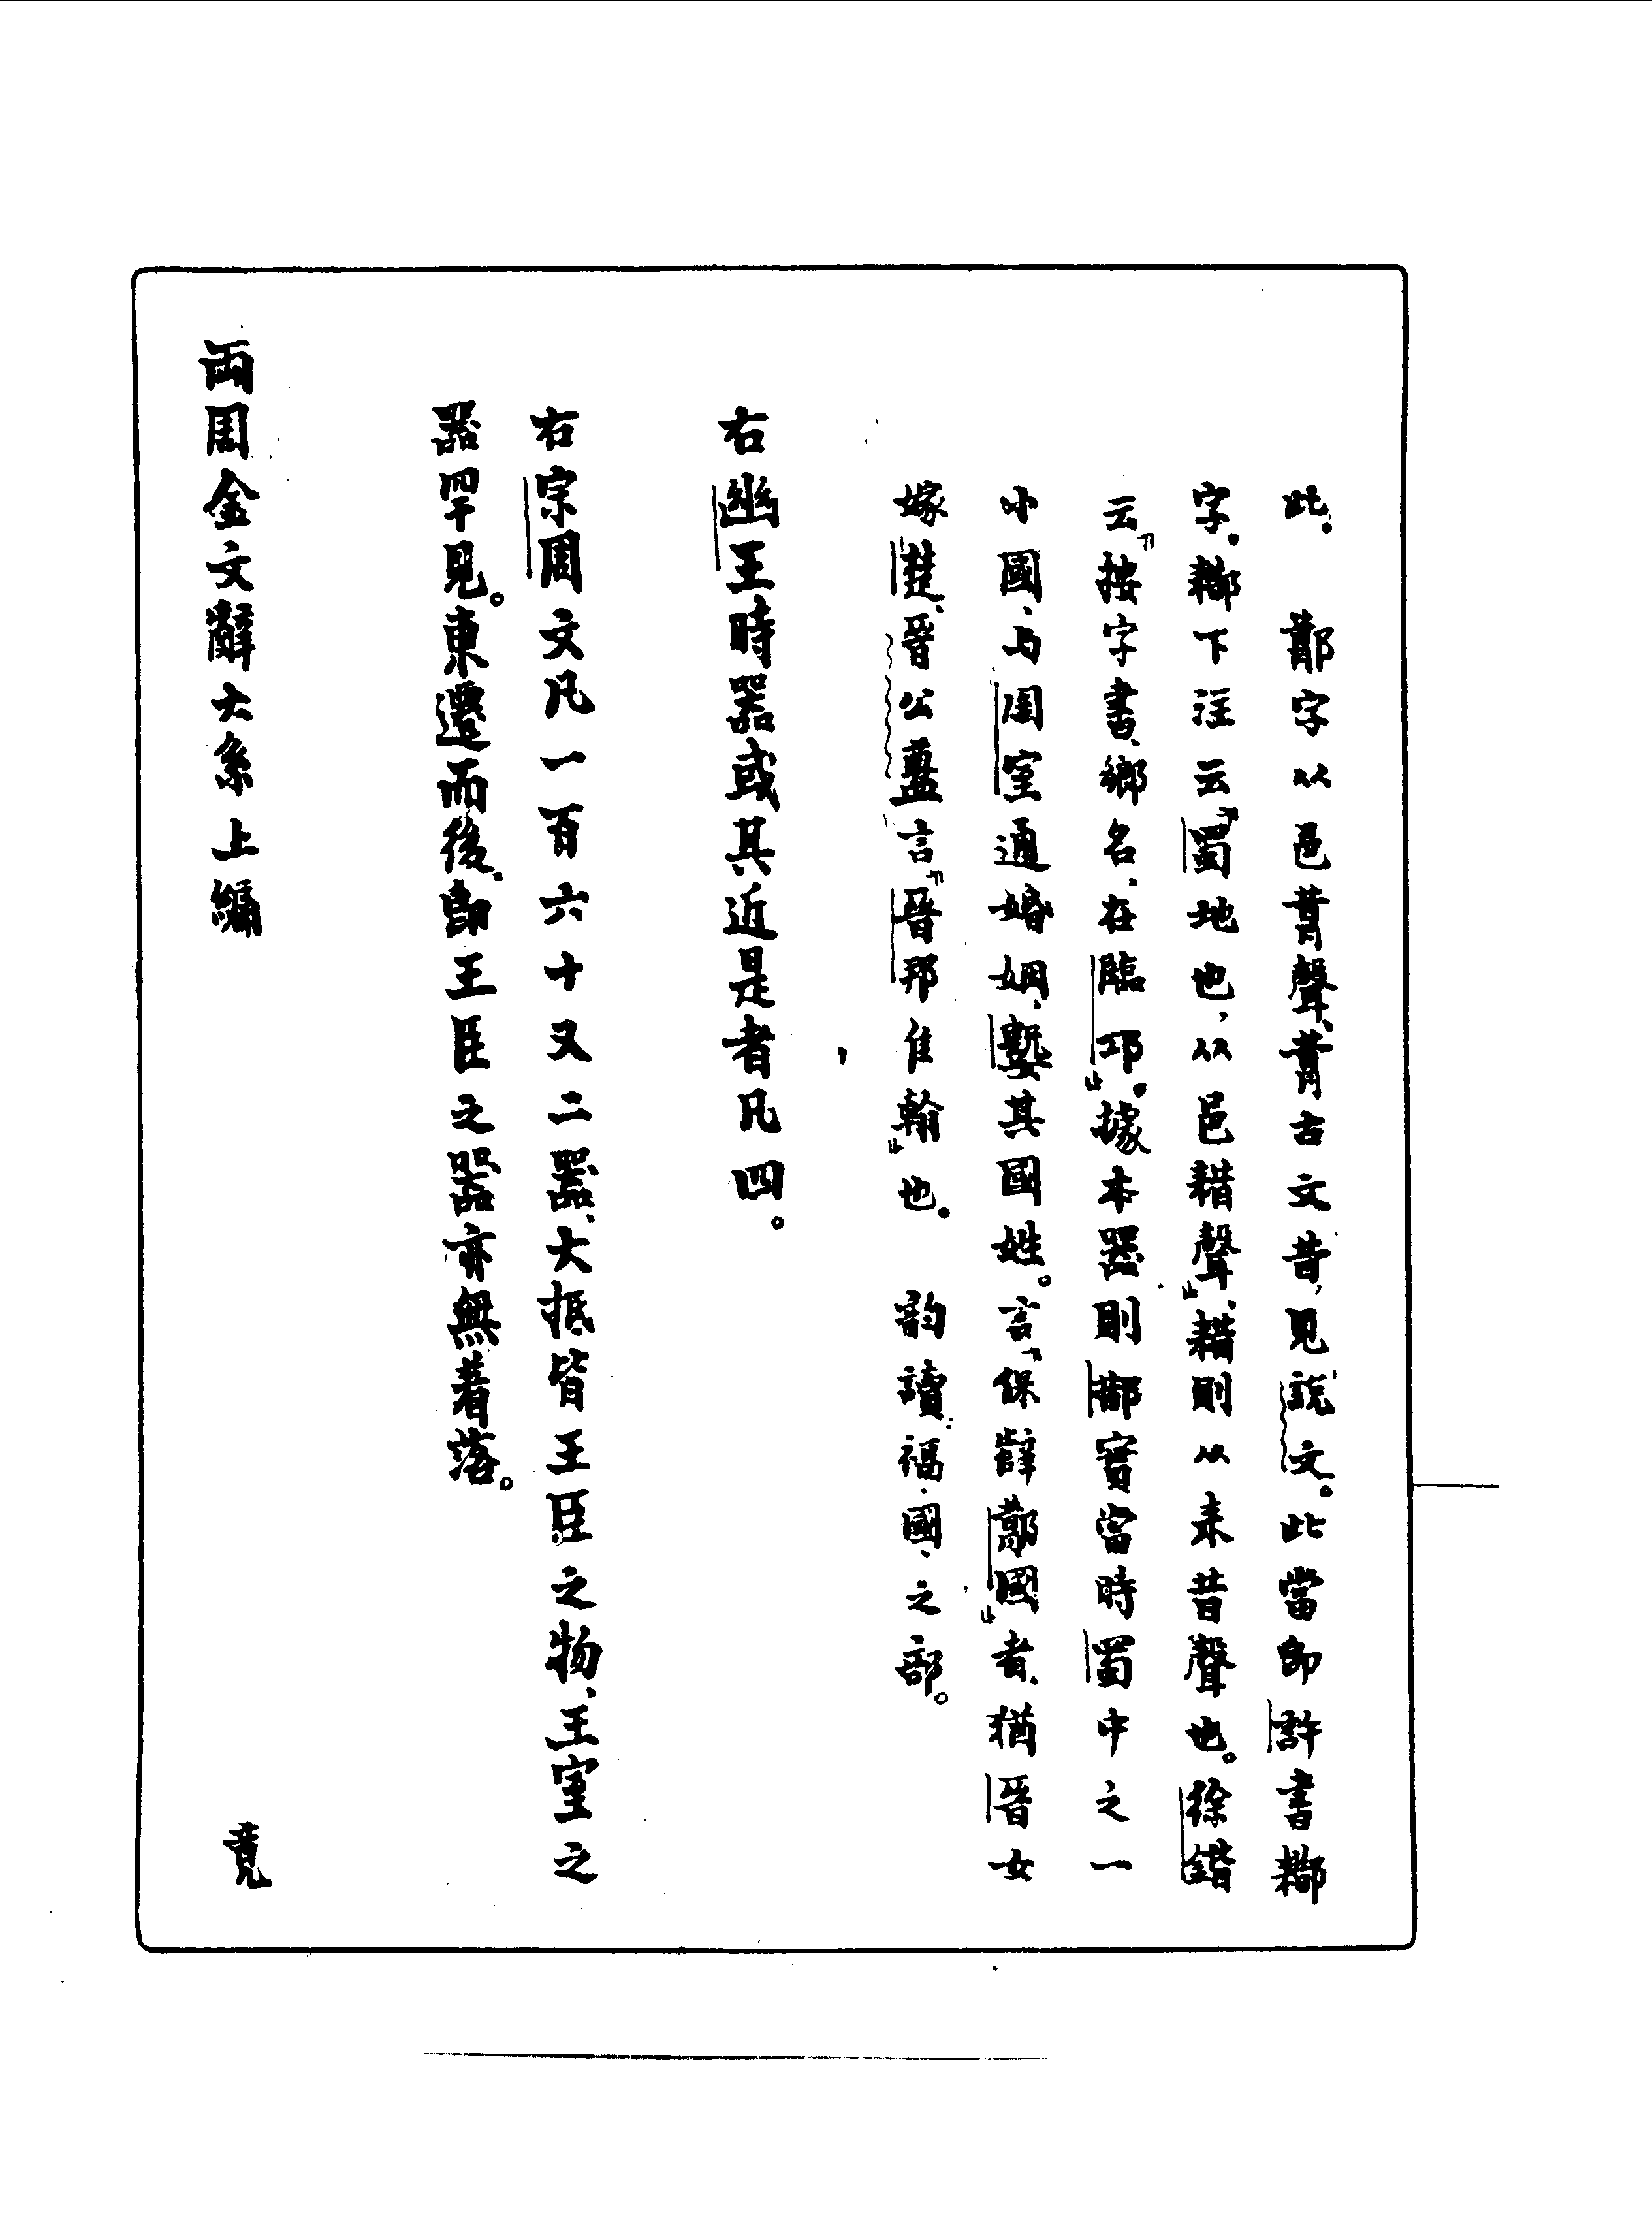 此。　鄁字从邑𦳝聲、𦳝古文昔、見說文。此當即許書䣢
字。䣢下注云『蜀地也、从邑耤聲』、耤則从耒昔聲也。徐鍇
云『按字書、鄉名、在臨邛』。據本器則鄀實當時蜀中之一
小國、与周室通婚姻、嬰其國姓。言『保辥國』者、猶晉女
嫁楚、晉公𥂴言『晉邦隹翰』也。　韵讀：福、國、之部。
右幽王時器或其近是者凡四。
右宗周文凡一百六十又二器、大抵皆王臣之物、王室之
器罕見。東遷而後、即王臣之器亦無着落。
兩周金文辭大系上編　竟